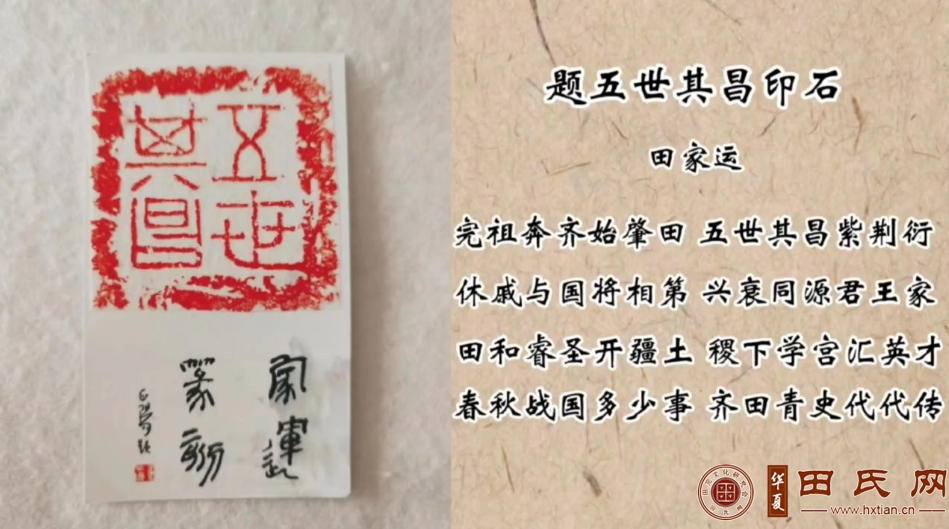 五世
其昌
家運
篆刻
题五世其昌印石
田家运
完祖奔齐始肇田 五世其昌紫荆衍
休戚与国将相第 兴衰同源君王家
田和睿圣开疆土 稷下学宫汇英才
春秋战国多少事 齐田青史代代传
华夏
田氏网
www.hxtian.cn